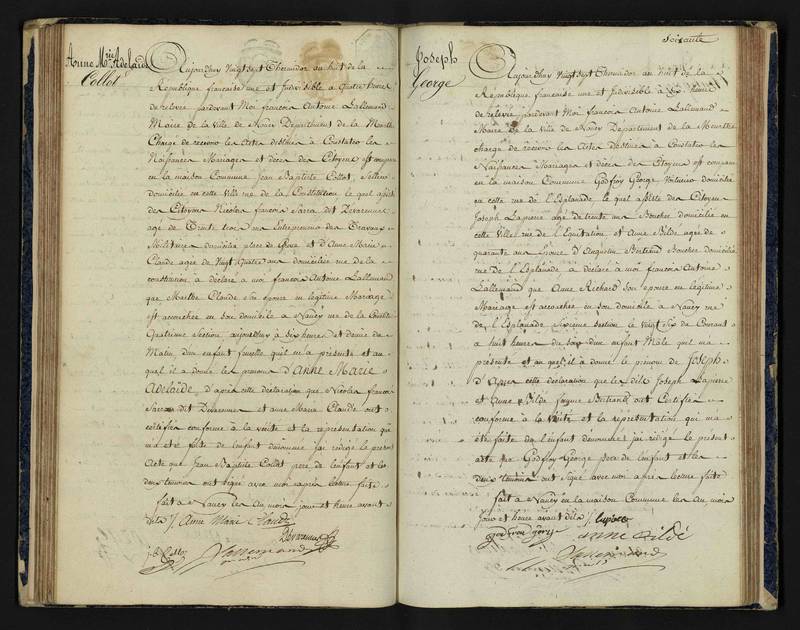 Anne Mrie Adelaide
Collot
Aujourdhuy Vingt Sept Thermidor an huit de la
République française une et Indivisible a Quatre heures
de relevée pardevant Moi françois Antoine Lallemand
Maire de la Ville de Nancy Département de la Meurthe
Chargé de recevoir les Actes destinés à Constater les
Naissances Mariages et décès des Citoyens est comparu
en la maison Commune Jean Baptiste Collot, Sellier
domicilié en cette Ville rue de la Constitution le quel assisté
des Citoyens Nicolas françois Sarra dit Devarennes
age de Trente trois ans Entrepreneur des Travaux
Militaires domicilié place de Grève et d'Anne Marie
Claude agée de Vingt Quatre ans domiciliée rue de la
constitution à déclaré à moi françois Antoine Lallemand
que Marthe Claude Son épouse en légitime Mariage
est accouchée en son domicile à Nancy rue de la Constitution
Quatrieme Section aujourdhuy à six heures et demie du
Matin, d'un enfant femelle qu'il m'a présenté et au
quel il a donné les prenoms d'ANNE MARIE
ADELAIDE, d'après cette déclaration que Nicolas françois
Sarra dit Devarennes et anne Marie Claude ont
certifiée conforme à la vérité et la représentation qui
ma été faite de l'enfant dénommé jai redigé le present
Acte que Jean Baptiste Collot pere de l'enfant et les
deux temoins ont signé avec moi après lecture faite
fait à Nancy les An mois jour et heure avant
dits ./. Anne Marie Claude
Devarennes
J. B. Collot
Lallemand
Soixante
Joseph
George
Aujourdhuy Vingt Sept Thermidor an huit de la
République française une et Indivisible à Six heures
de relevée pardevant Moi françois Antoine Lallemand
Maire de la Ville de Nancy Département de la Meurthe
chargé de recevoir les Actes destinés à Constater les
Naissances Mariages et décès des Citoyens est comparu
en la maison Commune Godfroy George Voiturier domicilié
en cette rue de l'Esplanade le quel assisté des Citoyens
Joseph Lapierre agé de trente ans Boucher domicilié en
cette Ville rue de l'Equitation et Anne Bildé agée de
quarante ans Epouse d'Augustin Bertrand Boucher domicilié
rue de l'Esplanade à déclaré à moi françois Antoine
Lallemand que Anne Richard Son épouse en légitime
Mariage est accouchée en son domicile à Nancy rue
de l'Esplanade Sixieme Section le Vingt Six du Courant
à huit heures du Soir d'un enfant Mâle qu'il m'a
présenté et au quel il a donné le prenom de JOSEPH
d'Apres cette déclaration que les dits Joseph Lapierre
et Anne Bildé femme Bertrand ont Certifiée
conforme à la vérité et la représentation qui m'a
été faite de l'enfant denommé jai redigé le present
acte que Godfroy George pere de l'enfant et les
deux temoins ont Signé avec moi apres lecture faite
fait à Nancy en la maison Commune les An mois
Jour et heure avant dits ./. Lapierre
godfroy george anne Bildé
Lallemand